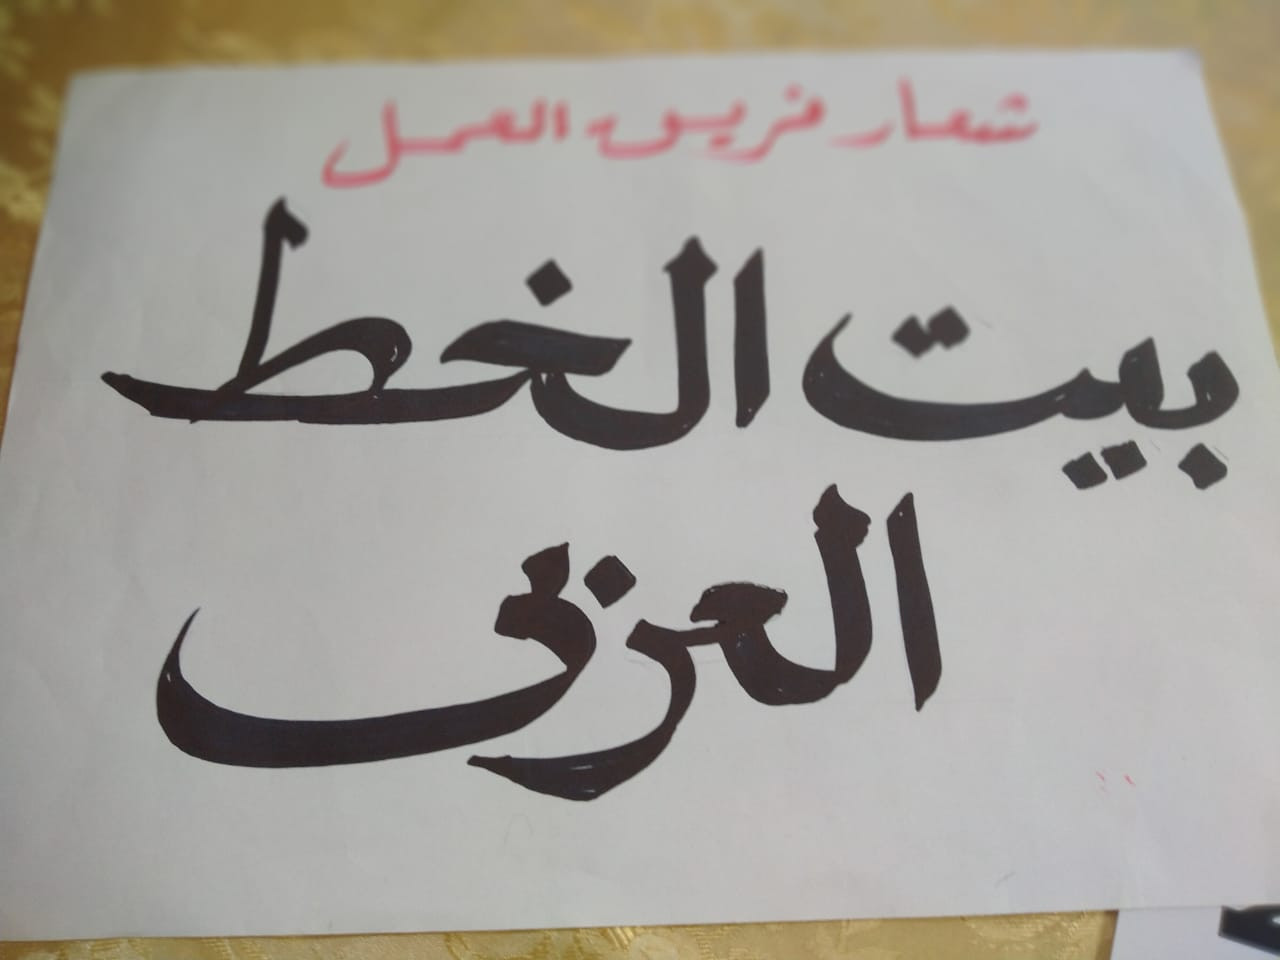 شعار فريق العمل
بيت الخط
العربى